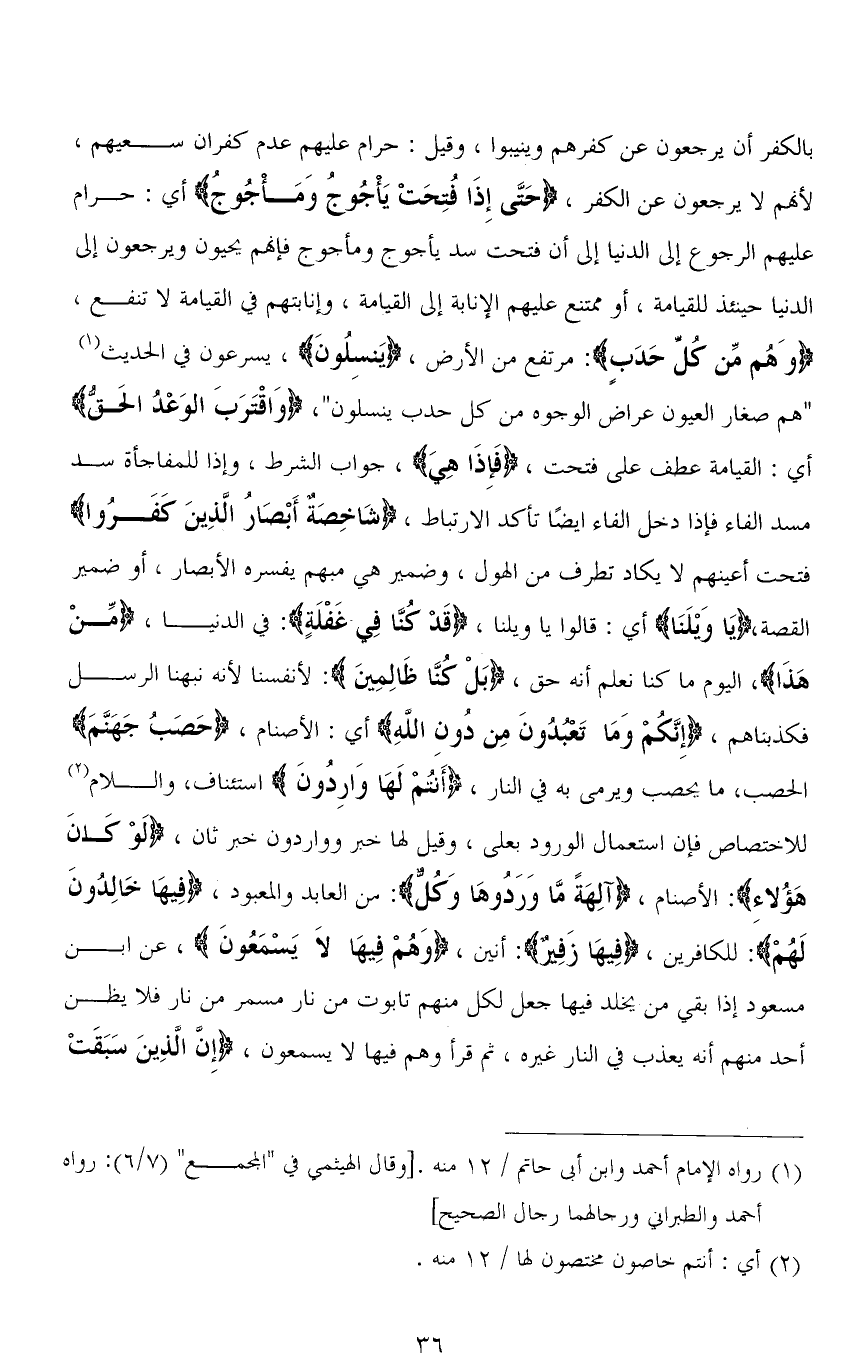 بالكفر أن يرجعون عن كفرهم وينيبوا ، وقيل : حرام عليهم عدم كفران سعيهم ،
لأنهم لا يرجعون عن الكفر ، ﴿حَتَّى إِذَا فُتِحَتْ يَأْجُوجُ وَمَأْجُوجُ﴾ أي : حرام
عليهم الرجوع إلى الدنيا إلى أن فتحت سد يأجوج ومأجوج فإنهم يحيون ويرجعون إلى
الدنيا حينئذ للقيامة ، أو ممتنع عليهم الإنابة إلى القيامة ، وإنابتهم في القيامة لا تنفع ،
﴿وَهُم مِّن كُلِّ حَدَبٍ﴾: مرتفع من الأرض ، ﴿يَنسِلُونَ﴾ ، يسرعون في الحديث(١)
"هم صغار العيون عراض الوجوه من كل حدب ينسلون"، ﴿وَاقْتَرَبَ الوَعْدُ الحَقُّ﴾
أي : القيامة عطف على فتحت ، ﴿فَإِذَا هِيَ﴾ ، جواب الشرط ، وإذا للمفاجأة سد
مسد الفاء فإذا دخل الفاء ايضًا تأكد الارتباط ، ﴿شَاخِصَةٌ أَبْصَارُ الَّذِينَ كَفَرُوا﴾
فتحت أعينهم لا يكاد تطرف من الهول ، وضمير هي مبهم يفسره الأبصار ، أو ضمير
القصة،﴿يَا وَيْلَنَا﴾ أي : قالوا يا ويلنا ، ﴿قَدْ كُنَّا فِي غَفْلَةٍ﴾: في الدنيا ، ﴿مِّنْ
هَذَا﴾، اليوم ما كنا نعلم أنه حق ، ﴿بَلْ كُنَّا ظَالِمِينَ ﴾: لأنفسنا لأنه نبهنا الرسل
فكذبناهم ، ﴿إِنَّكُمْ وَمَا تَعْبُدُونَ مِن دُونِ اللَّهِ﴾ أي : الأصنام ، ﴿حَصَبُ جَهَنَّمَ﴾
الحصب، ما يحصب ويرمى به في النار ، ﴿أَنتُمْ لَهَا وَارِدُونَ ﴾ استئناف، واللام(٢)
للاختصاص فإن استعمال الورود بعلى ، وقيل لها خبر وواردون خبر ثان ، ﴿لَوْ كَانَ
هَؤُلاءِ﴾: الأصنام ، ﴿آلِهَةً مَّا وَرَدُوهَا وَكُلٌّ﴾: من العابد والمعبود ، ﴿فِيهَا خَالِدُونَ
لَهُمْ﴾: للكافرين ، ﴿فِيهَا زَفِيرٌ﴾: أنين ، ﴿وَهُمْ فِيهَا لاَ يَسْمَعُونَ ﴾ ، عن ابن
مسعود إذا بقي من يخلد فيها جعل لكل منهم تابوت من نار مسمر من نار فلا يظن
أحد منهم أنه يعذب في النار غيره ، ثم قرأ وهم فيها لا يسمعون ، ﴿إِنَّ الَّذِينَ سَبَقَتْ
(١) رواه الإمام أحمد وابن أبى حاتم / ١٢ منه .[وقال الهيثمي في "المجمع" (٦/٧): رواه
أحمد والطبراني ورحالهما رجال الصحيح]
(٢) أي : أنتم خاصون مختصون لها / ١٢ منه .
٣٦